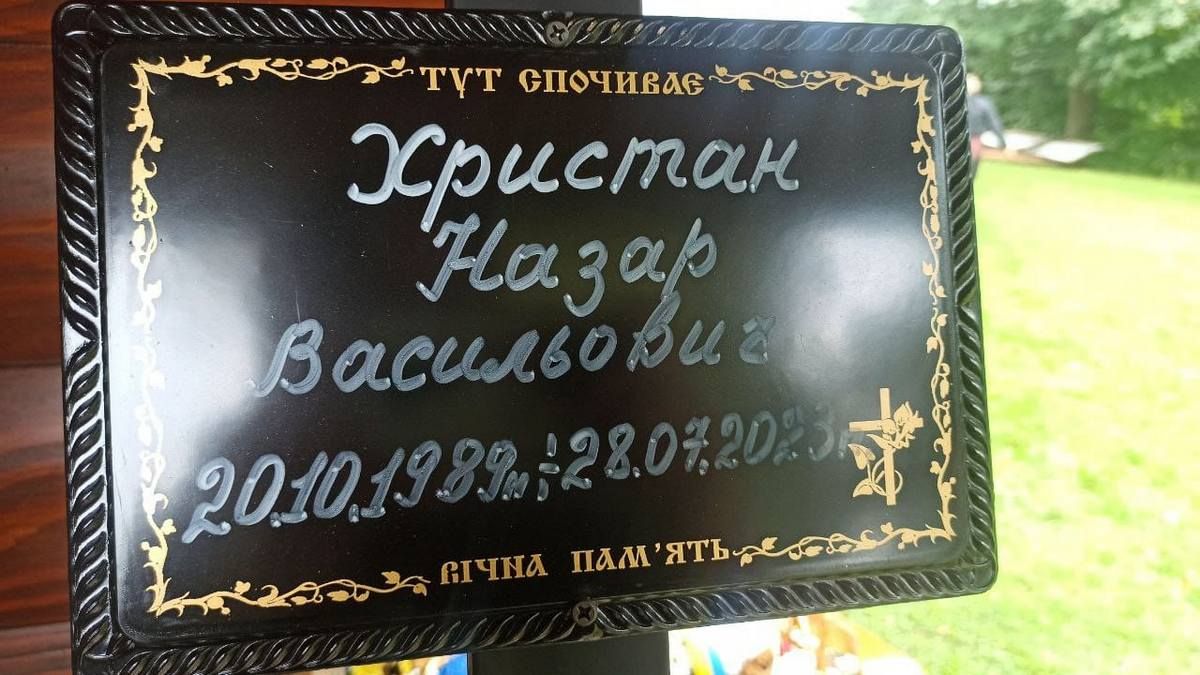 ТУТ СПОЧИВАЄ
Христан
Назар
Васильович
20.10.1989р. ÷ 28.07.2023р.
ВІЧНА ПАМ'ЯТЬ